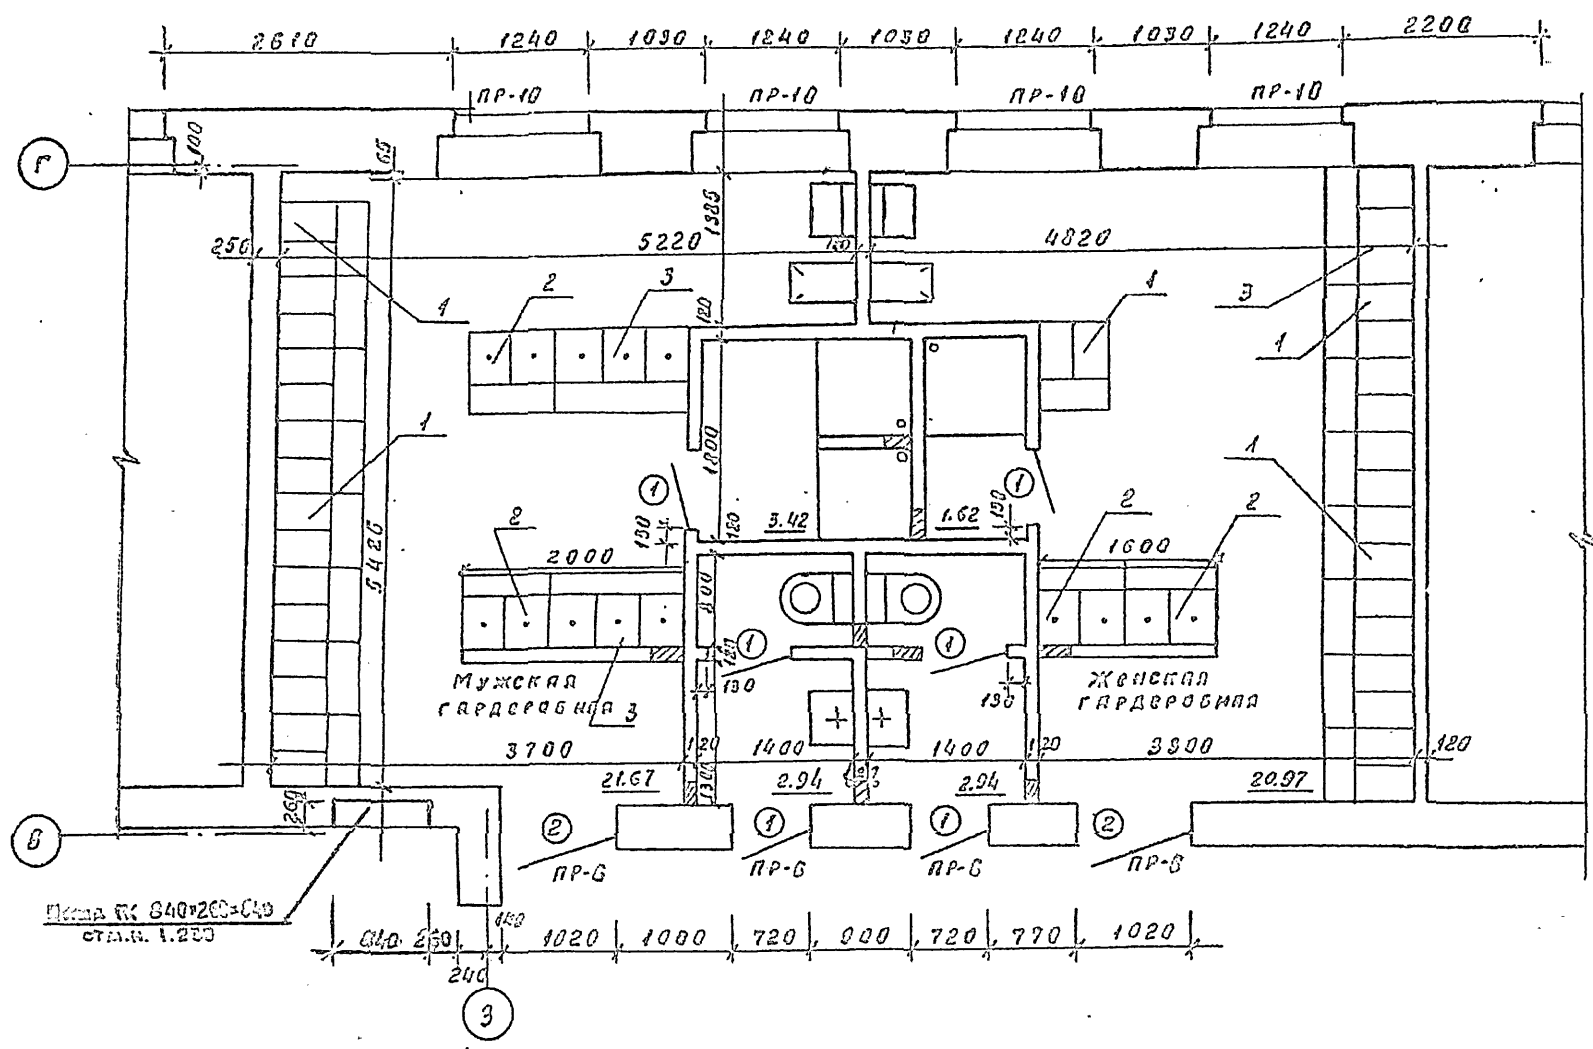 2610 1240 1030 1240 1030 1240 1030 1240 2200
ПР-10 ПР-10 ПР-10 ПР-10
Г
100
65
1385
250 5220 120 4820
2 3 1 3
1
1
120
1
1800
1
1 1
2 2 2
130 130
3.42 1.62
120
2000 1600
5420
800
1 1
120
Мужская
гардеробная 3
Женская
гардеробная
130 130
3700 120 1400 1400 120 3800 120
21.67 2.94 2.94 20.97
1300
260
В
2 1 1 2
ПР-6 ПР-6 ПР-6 ПР-6
Ниша ПК 840×260×640
отм.н. 1.230
840 260 1020 1000 720 900 720 770 1020
240
3